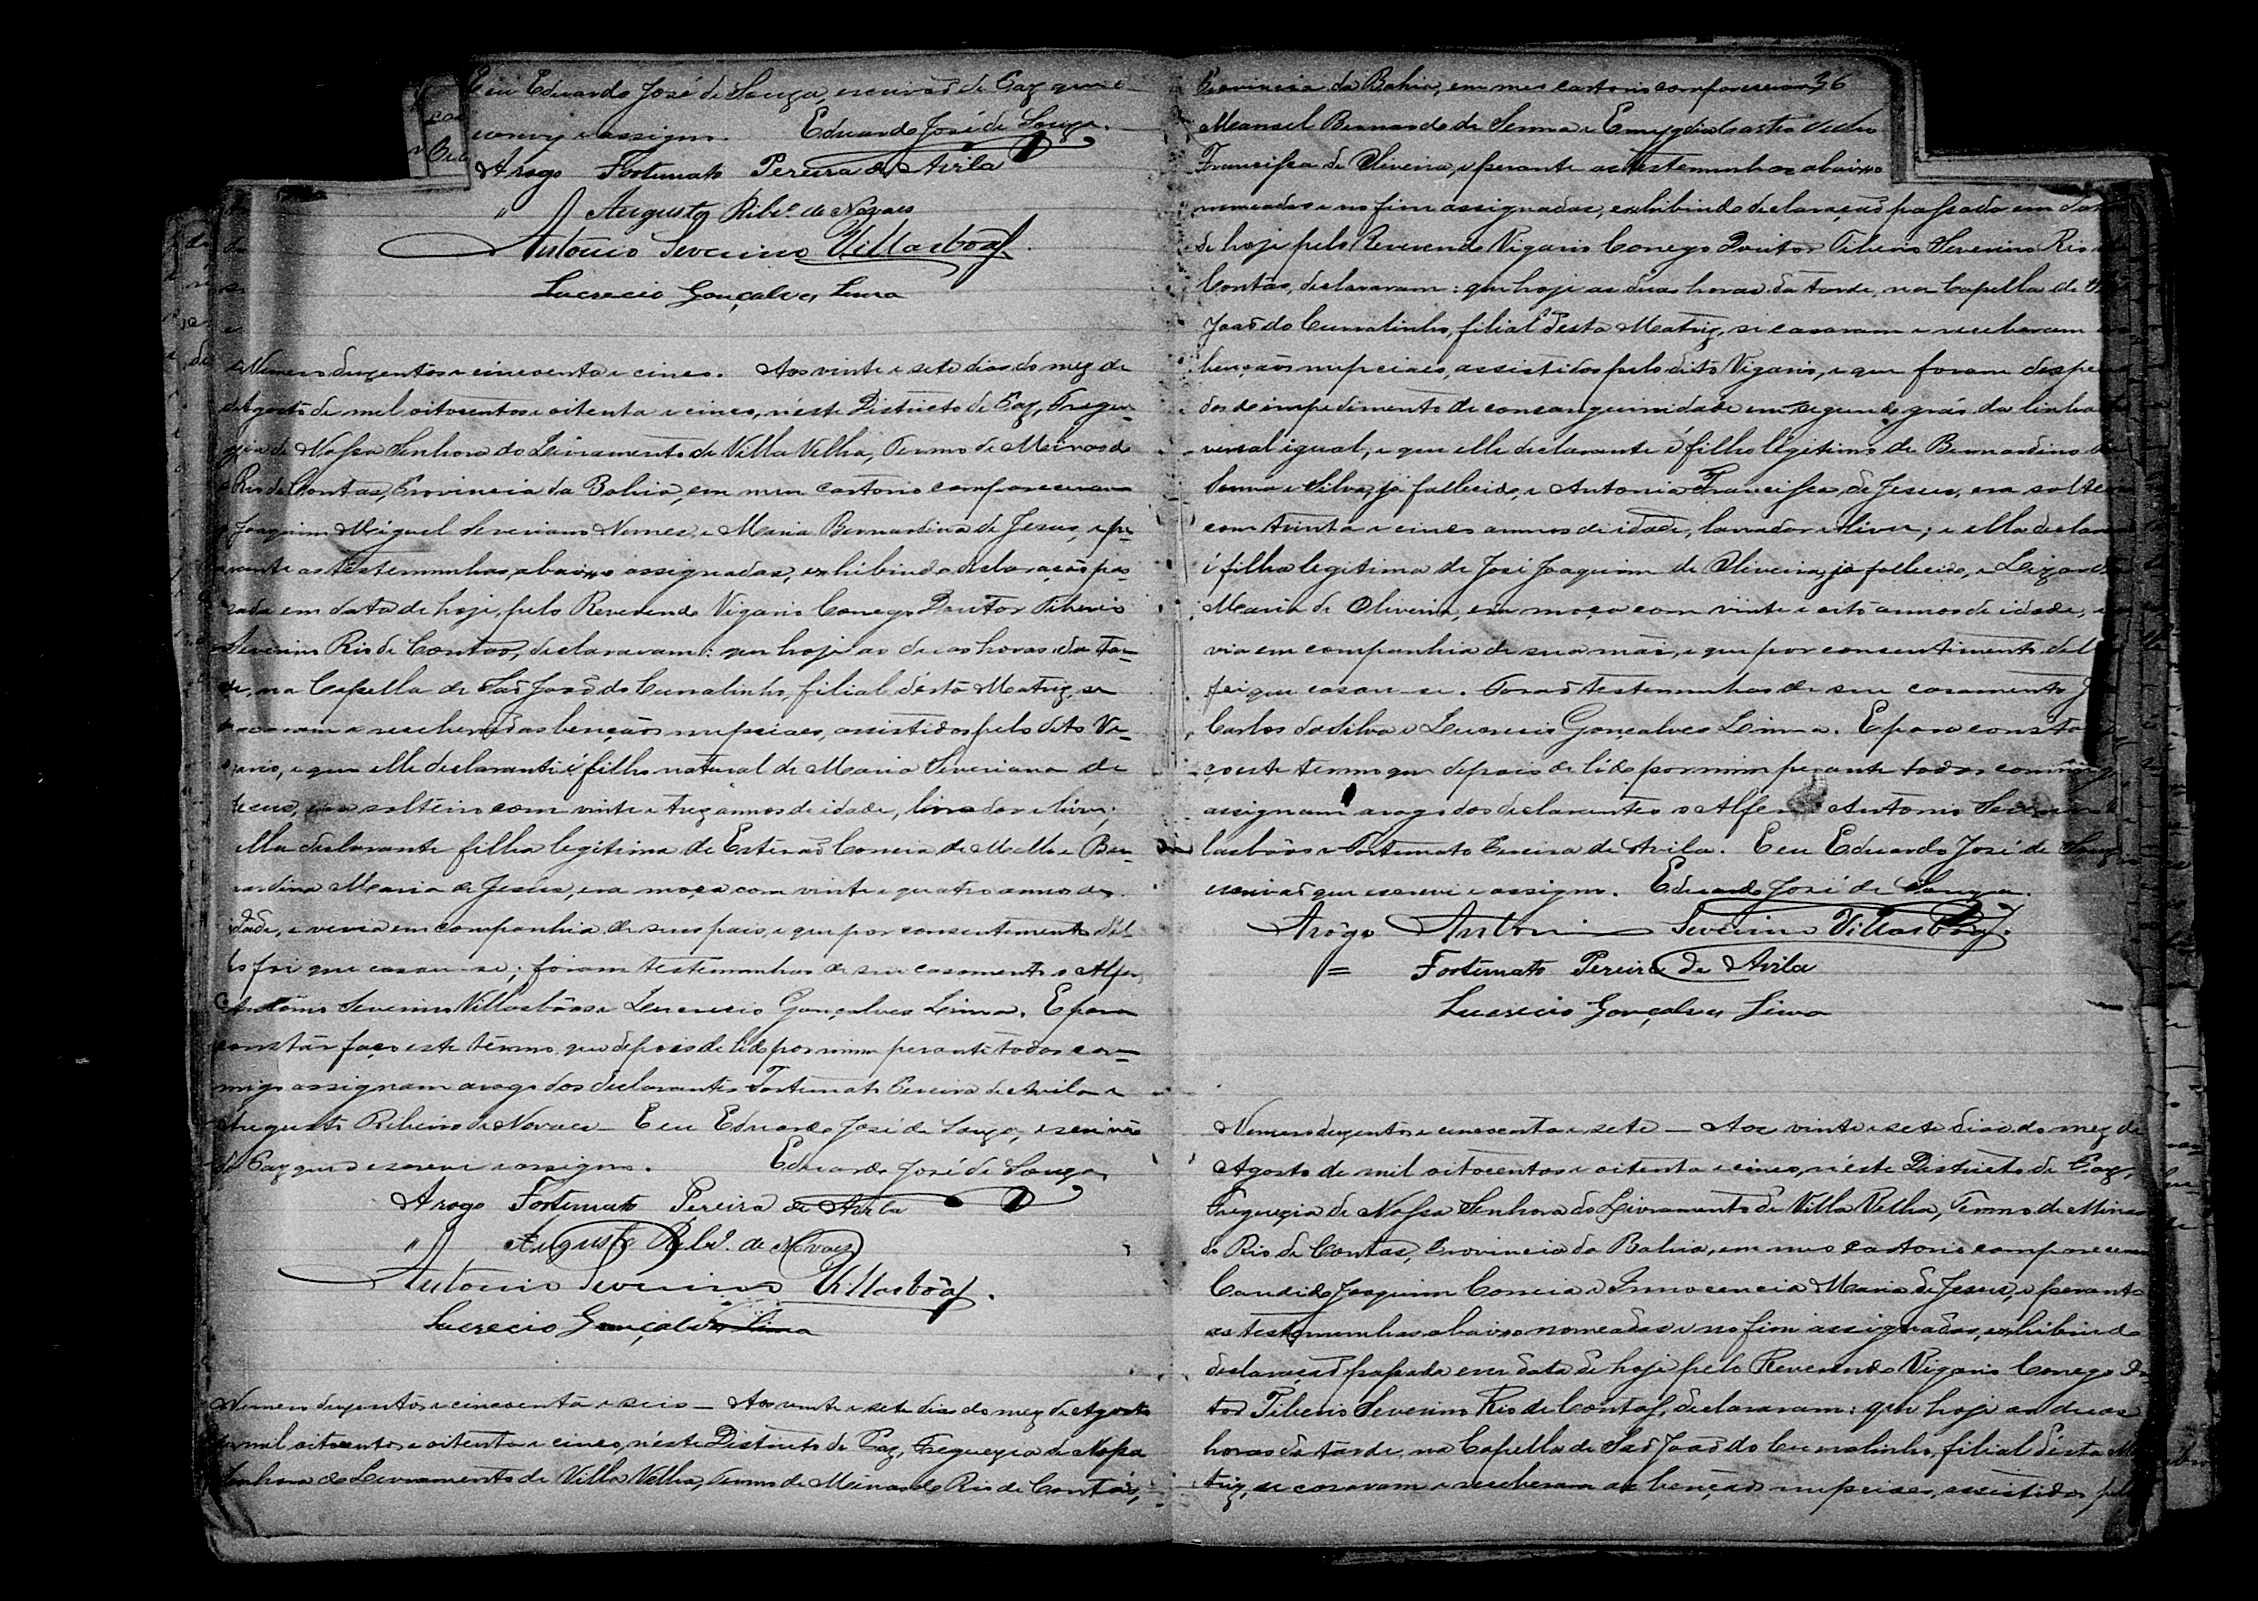 E eu Eduardo José de Souza, escrivão de Paz que o
escrevy e assigno. Eduardo José de Souza.
Arogo Fortunato Pereira de Avila
" Augusto Ribr.º de Novaes
Antonio Severino Villasbôas.
Lucrecio Gonçalves Lima
Numero duzentos e cincoenta e cinco. Aos vinte e sete dias do mez de
Agosto de mil oitocentos e oitenta e cinco, n'este Districto de Paz, Fregue-
zia de Nossa Senhora do Livramento de Villa Velha, Termo de Minas do
Rio de Contas, Provincia da Bahia, em meu cartorio compareceram
Joaquim Miguel Severiano Nunes, e Maria Bernardina de Jesus, e pe-
rante as testemunhas abaixo assignadas, exhibindo declaração pas-
sada em data de hoje, pelo Reverendo Vigario Conego Doutor Tiberio
Severino Rio de Contas, declararam: que hoje as duas horas da tar-
de, na Capella de São João do Curralinho, filial désta Matriz, se
casaram e receberam as bençãos nupciaes, assistidos pelo dito Vi-
gario, e que elle declarante é filho natural de Maria Severiana de
Jesus, era solteiro com vinte e trez annos de idade, lavrador e livre;
ella declarante filha legitima de Estevão Correia de Mello e Ber-
nardina Maria de Jesus, era moça com vinte e quatro annos de
idade, e vevia em companhia de seus pais, e que por consentimento del-
les foi que casou-se; foram testemunhas de seu casamento o Alferes
Antonio Severino Villasbôas e Lucrecio Gonçalves Lima. E para
constar faço este termo que depois de lido por mim perante todos com-
migo assignam arogo dos declarantes Fortunato Pereira de Avila e
Augusto Ribeiro de Novaes. E eu Eduardo José de Souza, escrivão
de Paz que o escreve e assigno. Eduardo José de Souza
Arogo Fortunato Pereira de Avila
" Augusto Ribr.º de Novaes
Antonio Severino Villasbôas.
Lucrecio Gonçalves Lima
Numero duzentos e cincoenta e seis — Aos vinte e sete dias do mez de Agosto
de mil oitocentos e oitenta e cinco, n'este Districto de Paz, Freguezia de Nossa
Senhora do Livramento de Villa Velha, Termo de Minas do Rio de Contas,
Provincia da Bahia, em meu cartorio compareceram 36
Manoel Bernardo de Senna e Emygdia
Francisca de Oliveira, e perante as testemunhas abaixo
nomeadas e no fim assignadas, exhibindo declaração passada em data
de hoje pelo Reverendo Vigario Conego Doutor Tiberio Severino Rio de
Contas, declararam: que hoje as duas horas da tarde, na Capella de São
João do Curralinho, filial desta Matriz, se casaram e receberam as
bençãos nupciaes, assistidos pelo dito Vigario, e que foram dispensa-
dos de impedimento de consanguinidade em segundo gráo da linha trans-
versal igual, e que elle declarante é filho legitimo de Bernardino de
Senna e Silva, já fallecido, e Antonia Francisca de Jesus, era solteiro
com trinta e cinco annos de idade, lavrador e livre; e ella declarante
é filha legitima de José Joaquim de Oliveira, já fallecido, e Lizarda
Maria de Oliveira, era moça com vinte e oito annos de idade, e vi-
via em companhia de sua mãi, e que por consentimento della
foi que casou-se. Forão testemunhas de seu casamento
Carlos da Silva e Lucrecio Gonçalves Lima. E para constar fa-
ço este termo que depois de lido por mim perante todos commigo
assignam arogo dos declarantes o Alferes Antonio Severino Vil-
lasbôas e Fortunato Pereira de Avila. E eu Eduardo José de Souza
escrivão que escrevi e assigno. Eduardo José de Souza.
Arôgo Antonio Severino Villasbôas.
= Fortunato Pereira de Avila
Lucrecio Gonçalves Lima
Numero duzentos e cincoenta e sete — Aos vinte e sete dias do mez de
Agosto de mil oitocentos e oitenta e cinco, n'éste Districto de Paz,
Freguezia de Nossa Senhora do Livramento de Villa Velha, Termo de Minas
do Rio de Contas, Provincia da Bahia, em meu cartorio compareceram
Candido Joaquim Correia e Innocencia Maria de Jesus, e perante
as testemunhas abaixo nomeadas e no fim assignadas, exhibindo
declaração passada em data de hoje pelo Reverendo Vigario Conego Dou-
tor Tiberio Severino Rio de Contas, declararam: que hoje as duas
horas da tarde, na Capella de São João do Curralinho, filial désta Ma-
triz, se casaram e receberam as bençãos nupciaes, assistidos pelo